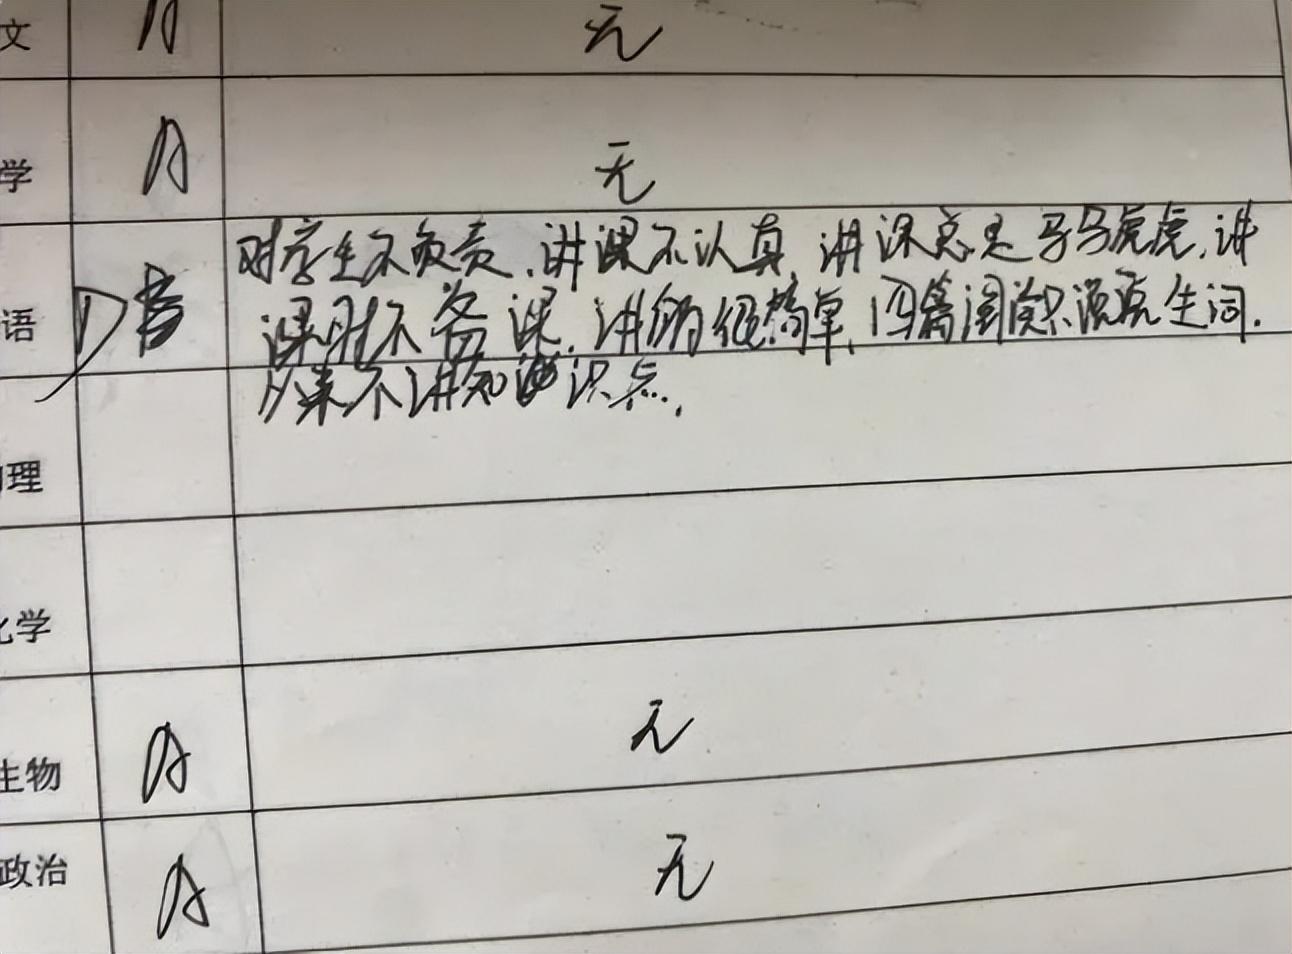 文 A 无
学 A 无
语 D 对学生不负责,讲课不认真,讲课总是马马虎虎,讲
课时不备课,讲的很简单,四篇阅读只说点生词.
从来不讲知识点.
理
化学
生物 A 无
政治 A 无